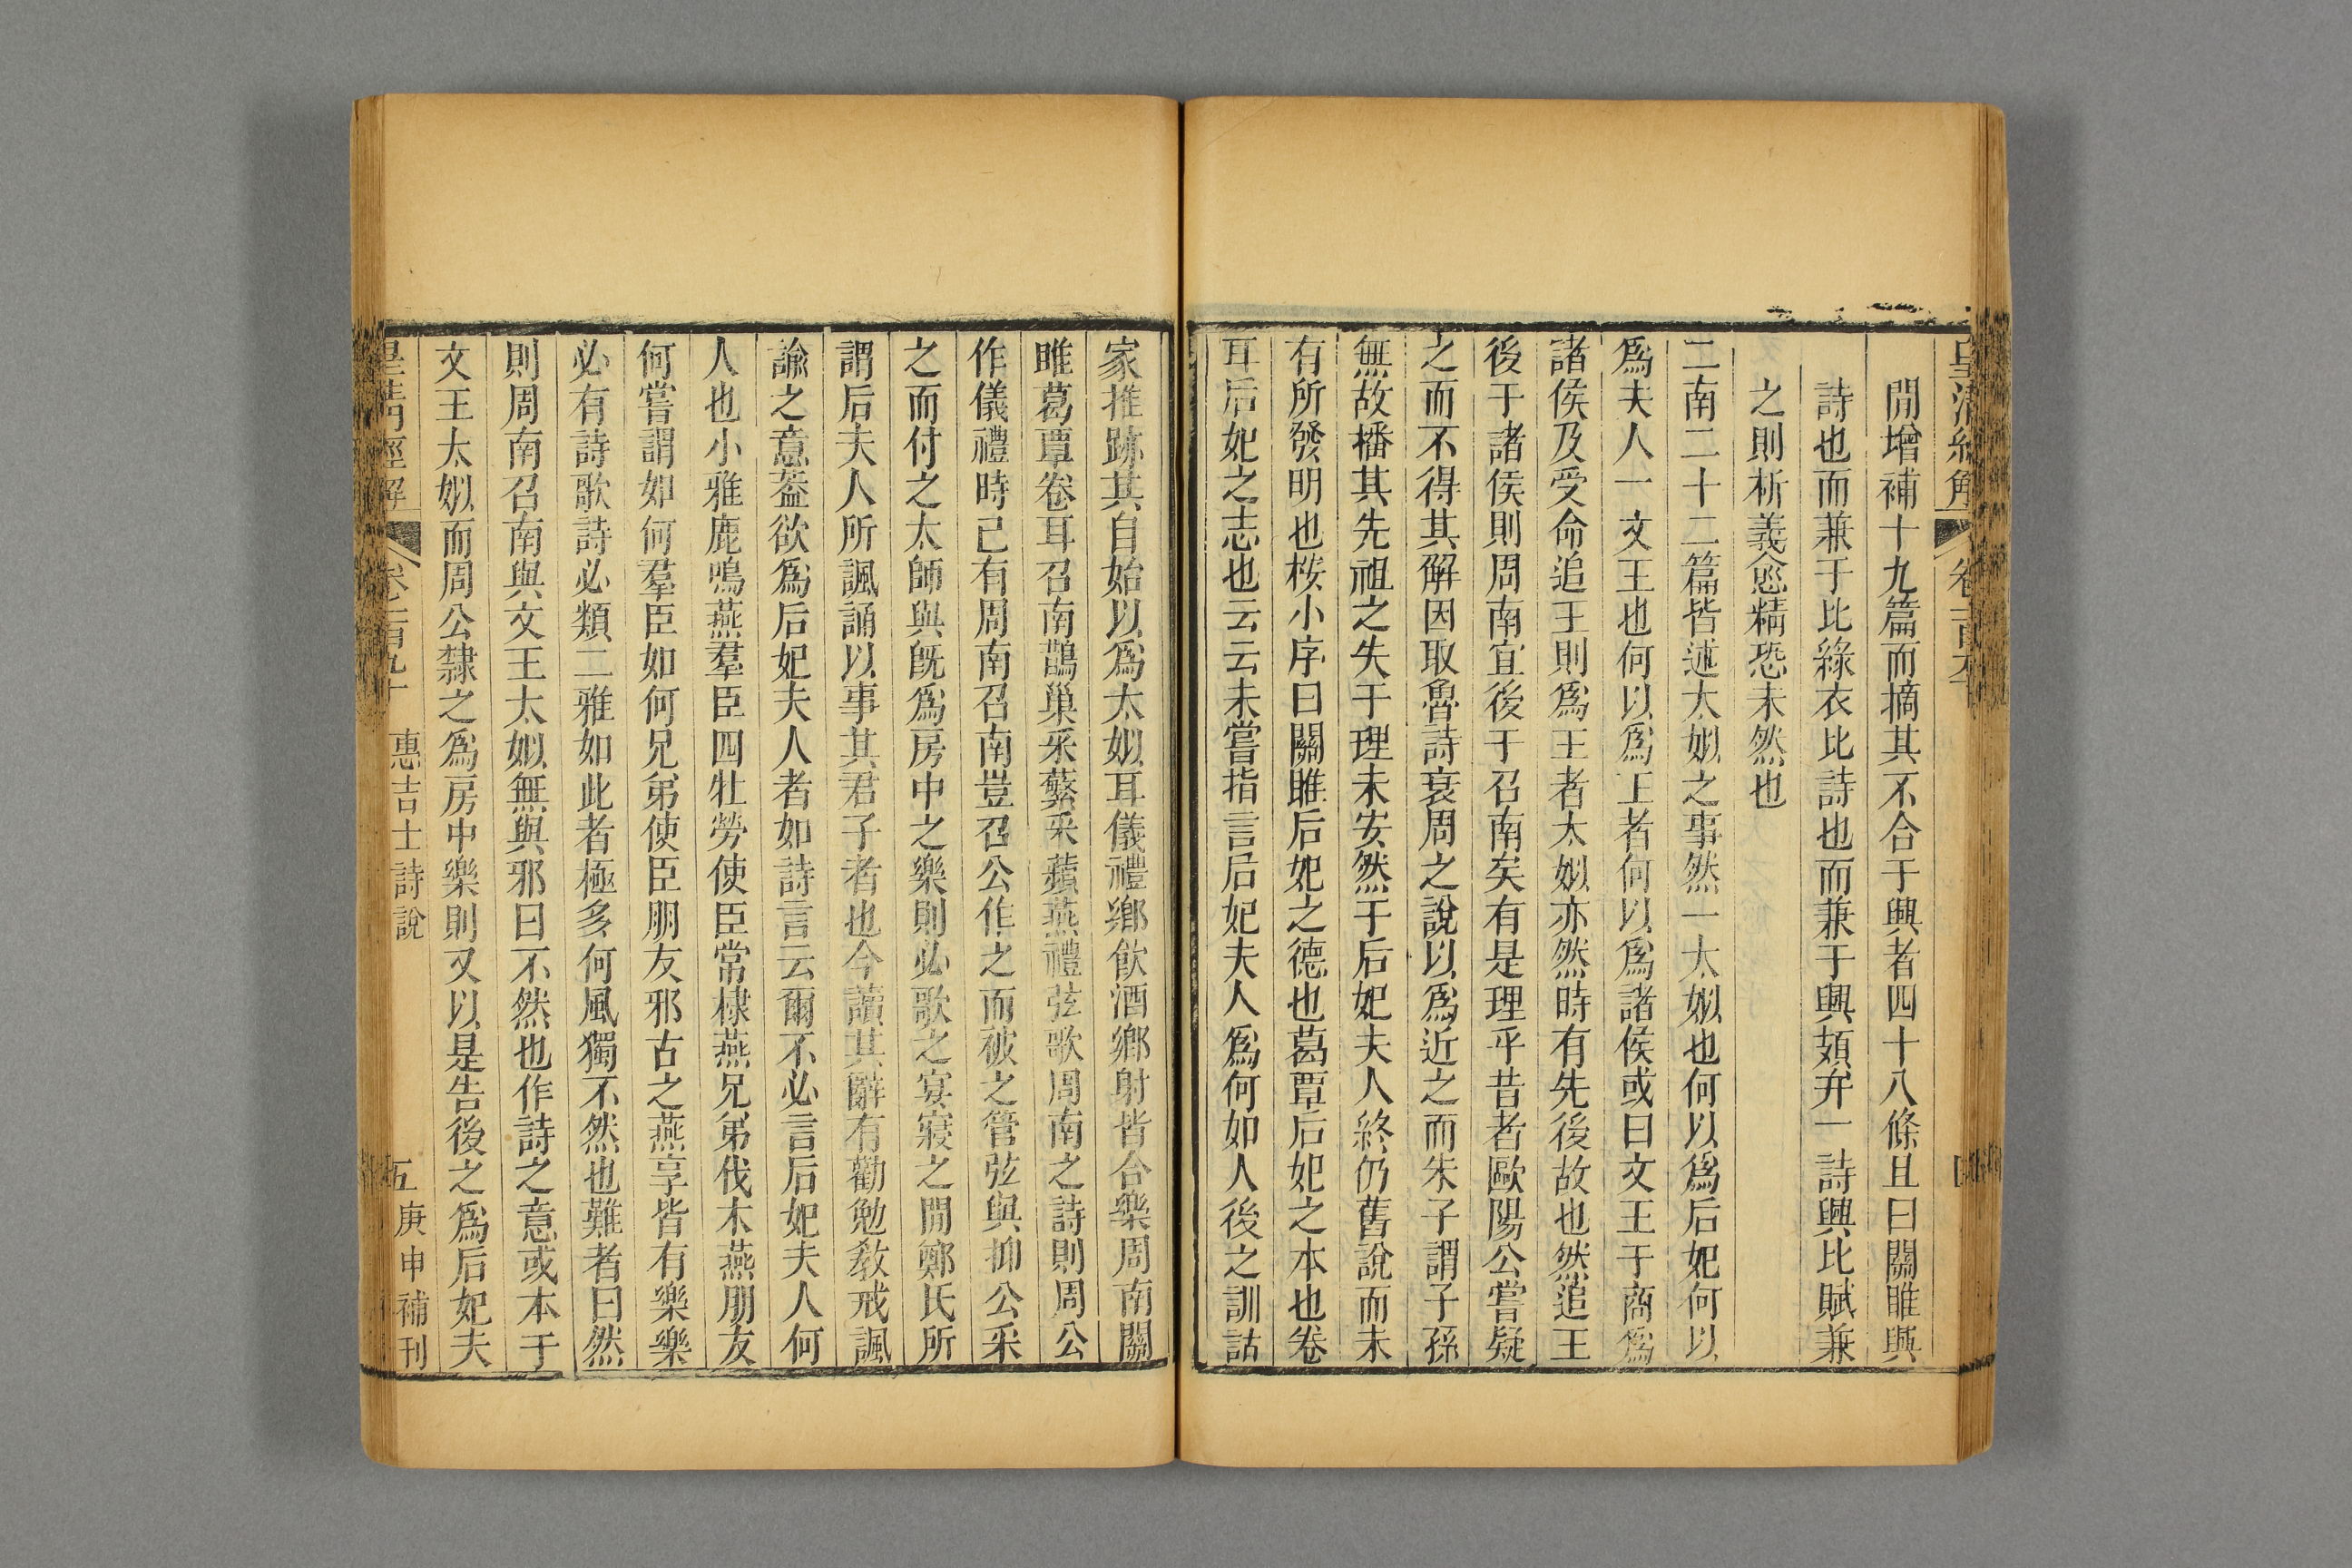 皇清經解 卷一百九十
閒增補十九篇而摘其不合于興者四十八條且曰關雎興
詩也而兼于比綠衣比詩也而兼于興頍弁一詩興比賦兼
之則析義愈精恐未然也
二南二十二篇皆述太姒之事然一太姒也何以爲后妃何以
爲夫人一文王也何以爲王者何以爲諸侯或曰文王于商爲
諸侯及受命追王則爲王者太姒亦然時有先後故也然追王
後于諸侯則周南宜後于召南矣有是理乎昔者歐陽公嘗疑
之而不得其解因取魯詩衰周之說以爲近之而朱子謂子孫
無故播其先祖之失于理未安然于后妃夫人終仍舊說而未
有所發明也桉小序曰關雎后妃之德也葛覃后妃之本也卷
耳后妃之志也云云未嘗指言后妃夫人爲何如人後之訓詁
家推跡其自始以爲太姒耳儀禮鄉飮酒鄉射皆合樂周南關
雎葛覃卷耳召南鵲巢采蘩采蘋燕禮弦歌周南之詩則周公
作儀禮時已有周南召南豈召公作之而被之管弦與抑公采
之而付之太師與旣爲房中之樂則必歌之宴寢之閒鄭氏所
謂后夫人所諷誦以事其君子者也今讀其辭有勸勉敎戒諷
諭之意葢欲爲后妃夫人者如詩言云爾不必言后妃夫人何
人也小雅鹿鳴燕羣臣四牡勞使臣常棣燕兄弟伐木燕朋友
何嘗謂如何羣臣如何兄弟使臣朋友邪古之燕享皆有樂樂
必有詩歌詩必類二雅如此者極多何風獨不然也難者曰然
則周南召南與文王太姒無與邪曰不然也作詩之意或本于
文王太姒而周公隸之爲房中樂則又以是告後之爲后妃夫
皇清經解 卷一百九十 惠吉士詩說 五 庚申補刊